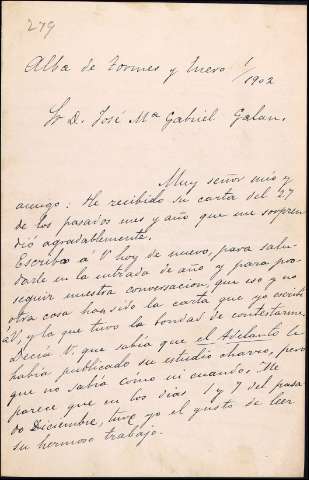 279
Alba de Tormes y Enero 1/1902
Sr D. José Mª Gabriel Galan.
Muy señor mio y
amigo: He recibido su carta del 27
de los pasados mes y año que me sorpren
dió agradablemente.
Escribo a V hoy de nuevo, para salu-
darle en la entrada de año y para pro-
seguir nuestra conversacion, que eso y no
otra cosa han sido la carta que yo escribí
á V, y la que tuvo la bondad de contestarme.
Decia V. que sabía que el Adelanto le
había publicado su estudio charro, pero
que no sabía cómo ni cuando. Me
parece que en los dias 1 y 7 del pasa
do Diciembre, tuve yo el gusto de leer
su hermoso trabajo.